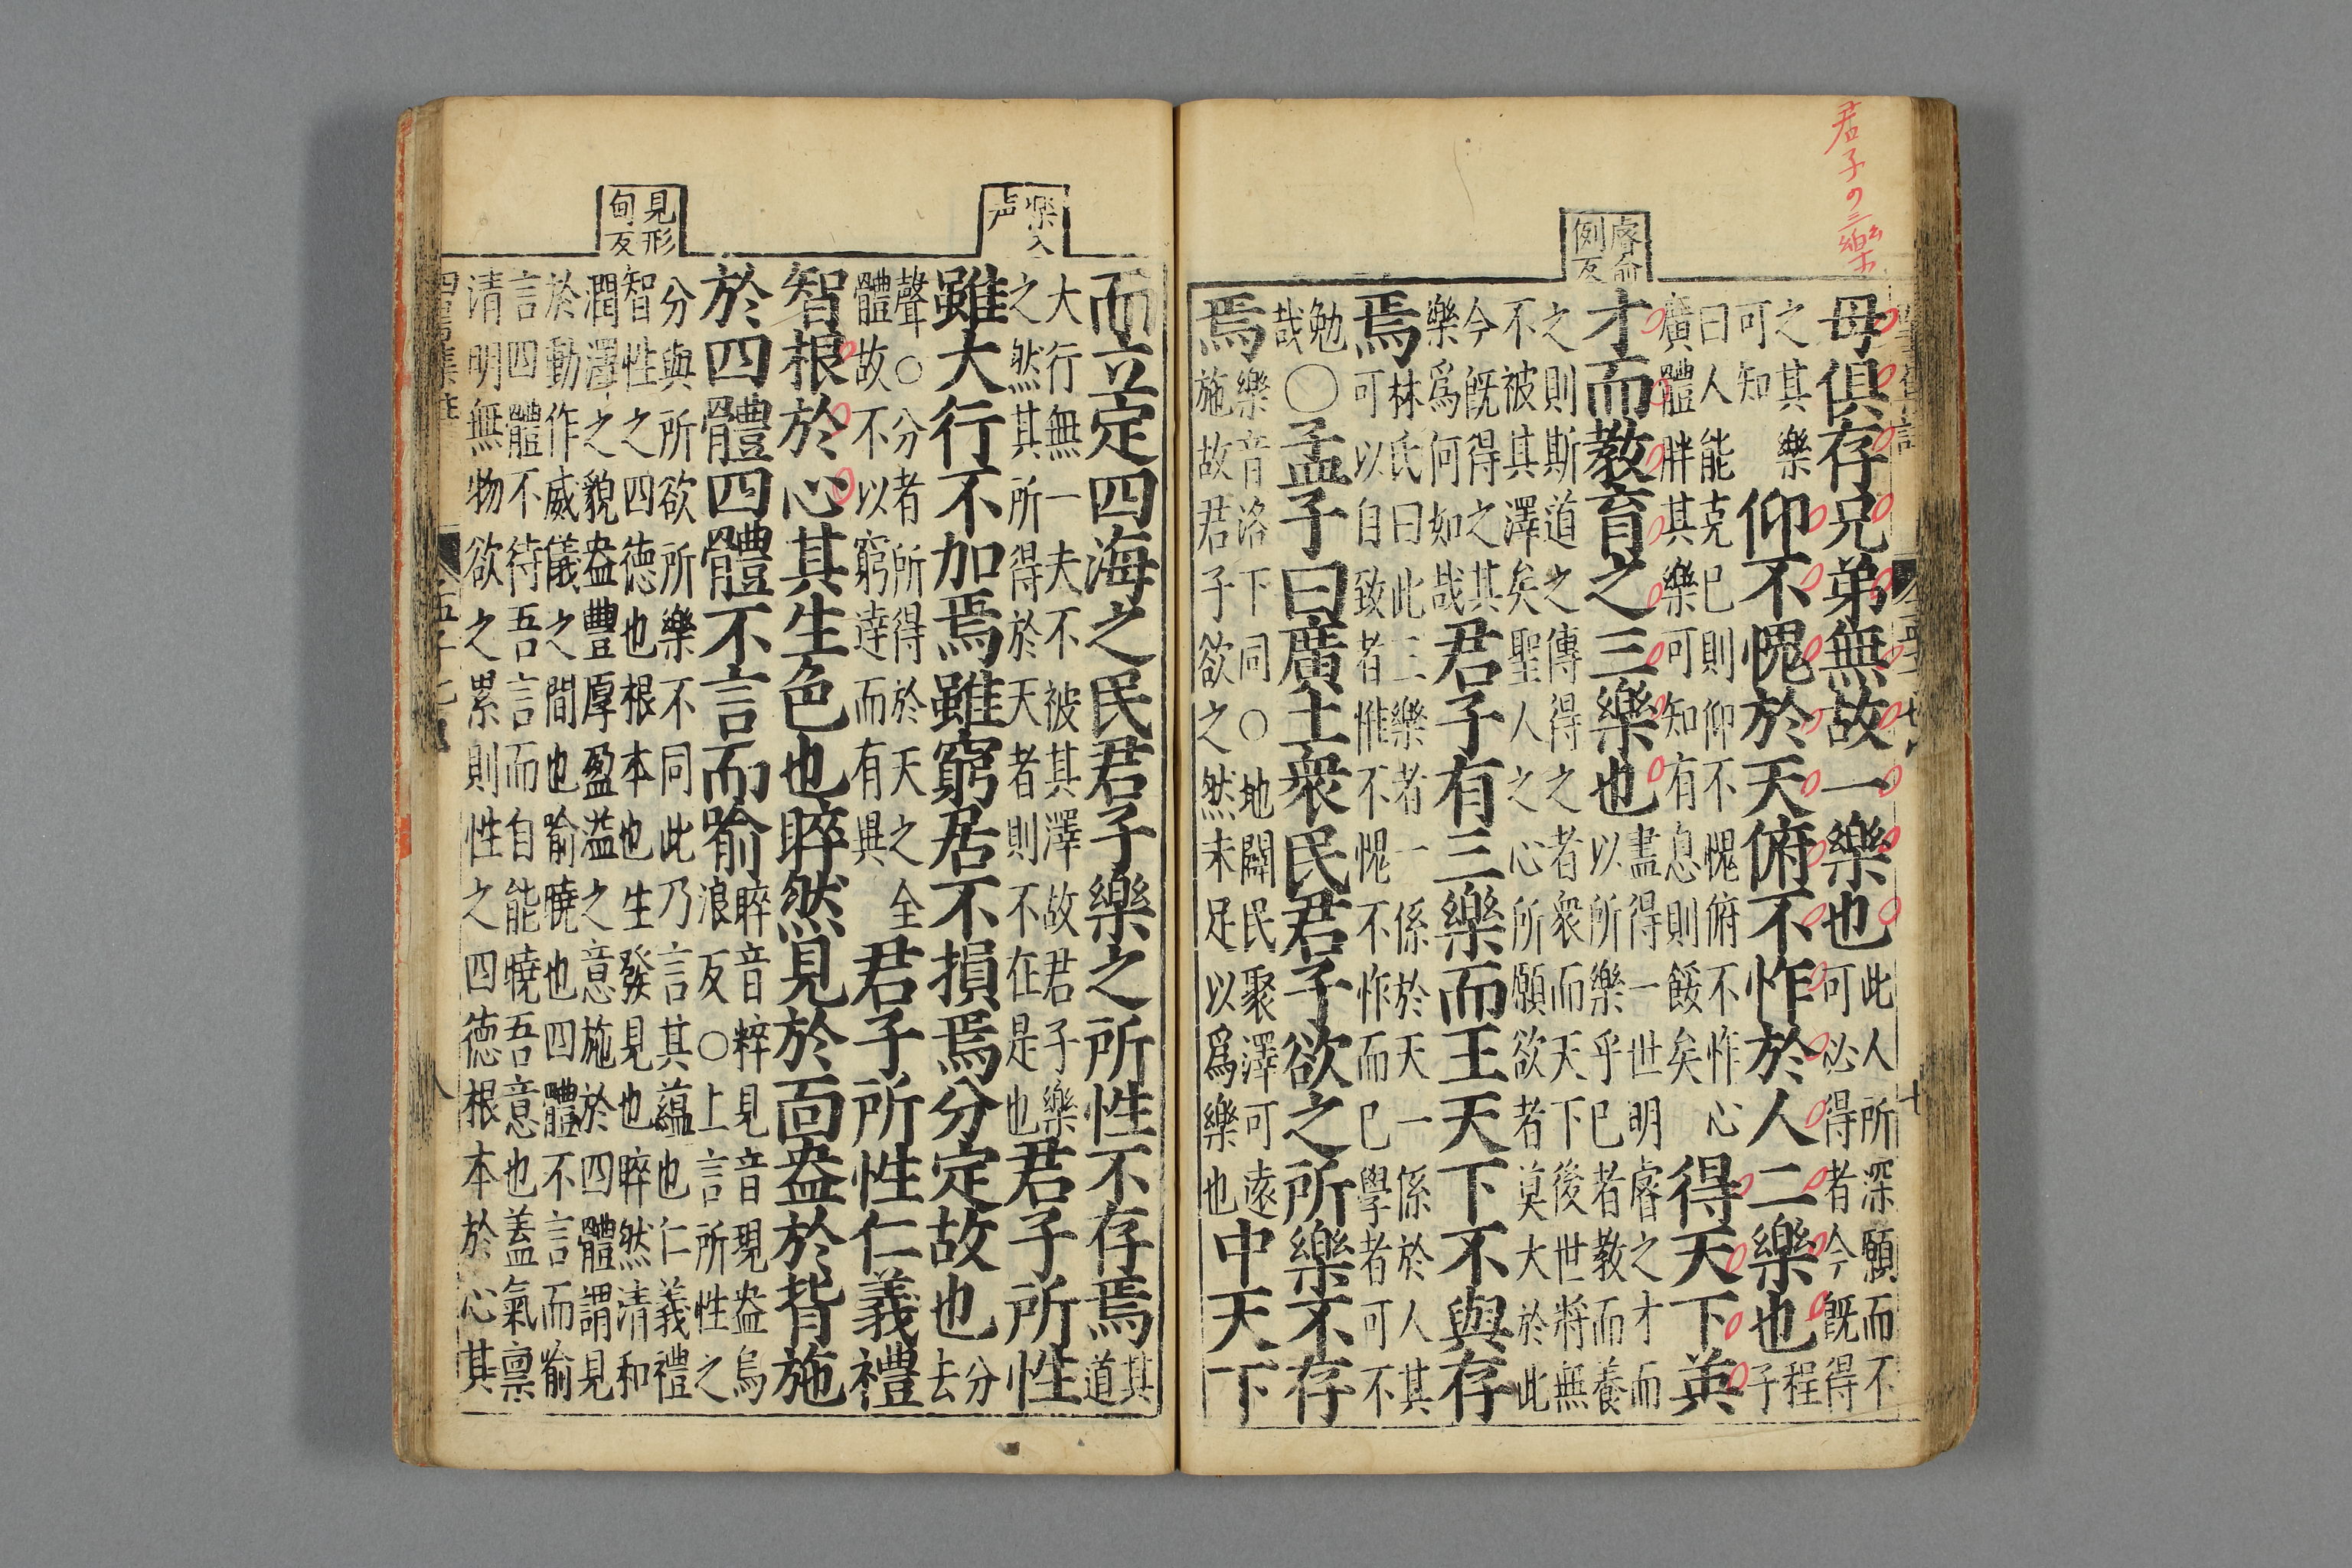 君子の三樂
睿俞例反
母俱存兄弟無故一樂也此人所深願而不可必得者今既得
之其樂可知仰不愧於天俯不怍於人二樂也程子
曰人能克己則仰不愧俯不怍心廣體胖其樂可知有息則餒矣得天下英
才而教育之三樂也盡得一世明睿之才而以所樂乎己者教而養
之則斯道之傳得之者衆而天下後世將無不被其澤矣聖人之心所願欲者莫大於此
今既得之其樂爲何如哉君子有三樂而王天下不與存
焉林氏曰此三樂者一係於天一係於人其可以自致者惟不愧不怍而已學者可不
勉哉○孟子曰廣土衆民君子欲之所樂不存
焉樂音洛下同○地闢民聚澤可遠施故君子欲之然未足以爲樂也中天下
樂入声
見形甸反
而立定四海之民君子樂之所性不存焉其道
大行無一夫不被其澤故君子樂之然其所得於天者則不在是也君子所性
雖大行不加焉雖窮居不損焉分定故也分去
聲○分者所得於天之全體故不以窮達而有異君子所性仁義禮
智根於心其生色也睟然見於面盎於背施
於四體四體不言而喻睟音粹見音現盎烏浪反○上言所性之
分與所欲所樂不同此乃言其蘊也仁義禮智性之四德也根本也生發見也睟然清和
潤澤之貌盎豐厚盈溢之意施於四體謂見於動作威儀之間也喻曉也四體不言而喻
言四體不待吾言而自能曉吾意也蓋氣稟清明無物欲之累則性之四德根本於心其